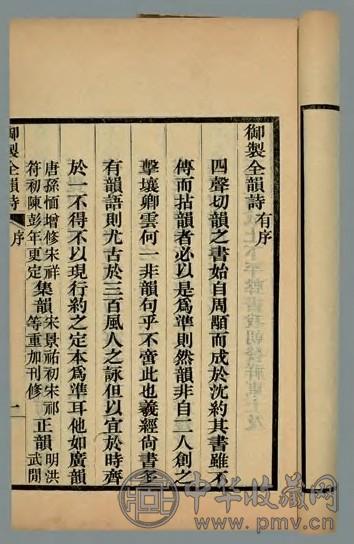 御製全韻詩有序
四聲切韻之書始自周顒而成於沈約其書雖不
傳而拈韻者必以是爲準則然韻非自二人創之
擊壤卿雲何一非韻句乎不啻此也羲經尚書多
有韻語則尤古於三百風人之詠但以宜於時齊
於一不得不以現行約之定本爲準耳他如廣韻
唐孫愐增修宋祥
符初陳彭年更定
集韻
宋景祐初宋祁
等重加刊修
正韻
明洪
武間
御製全韻詩
序
一
中华收藏网
www.pmv.cn